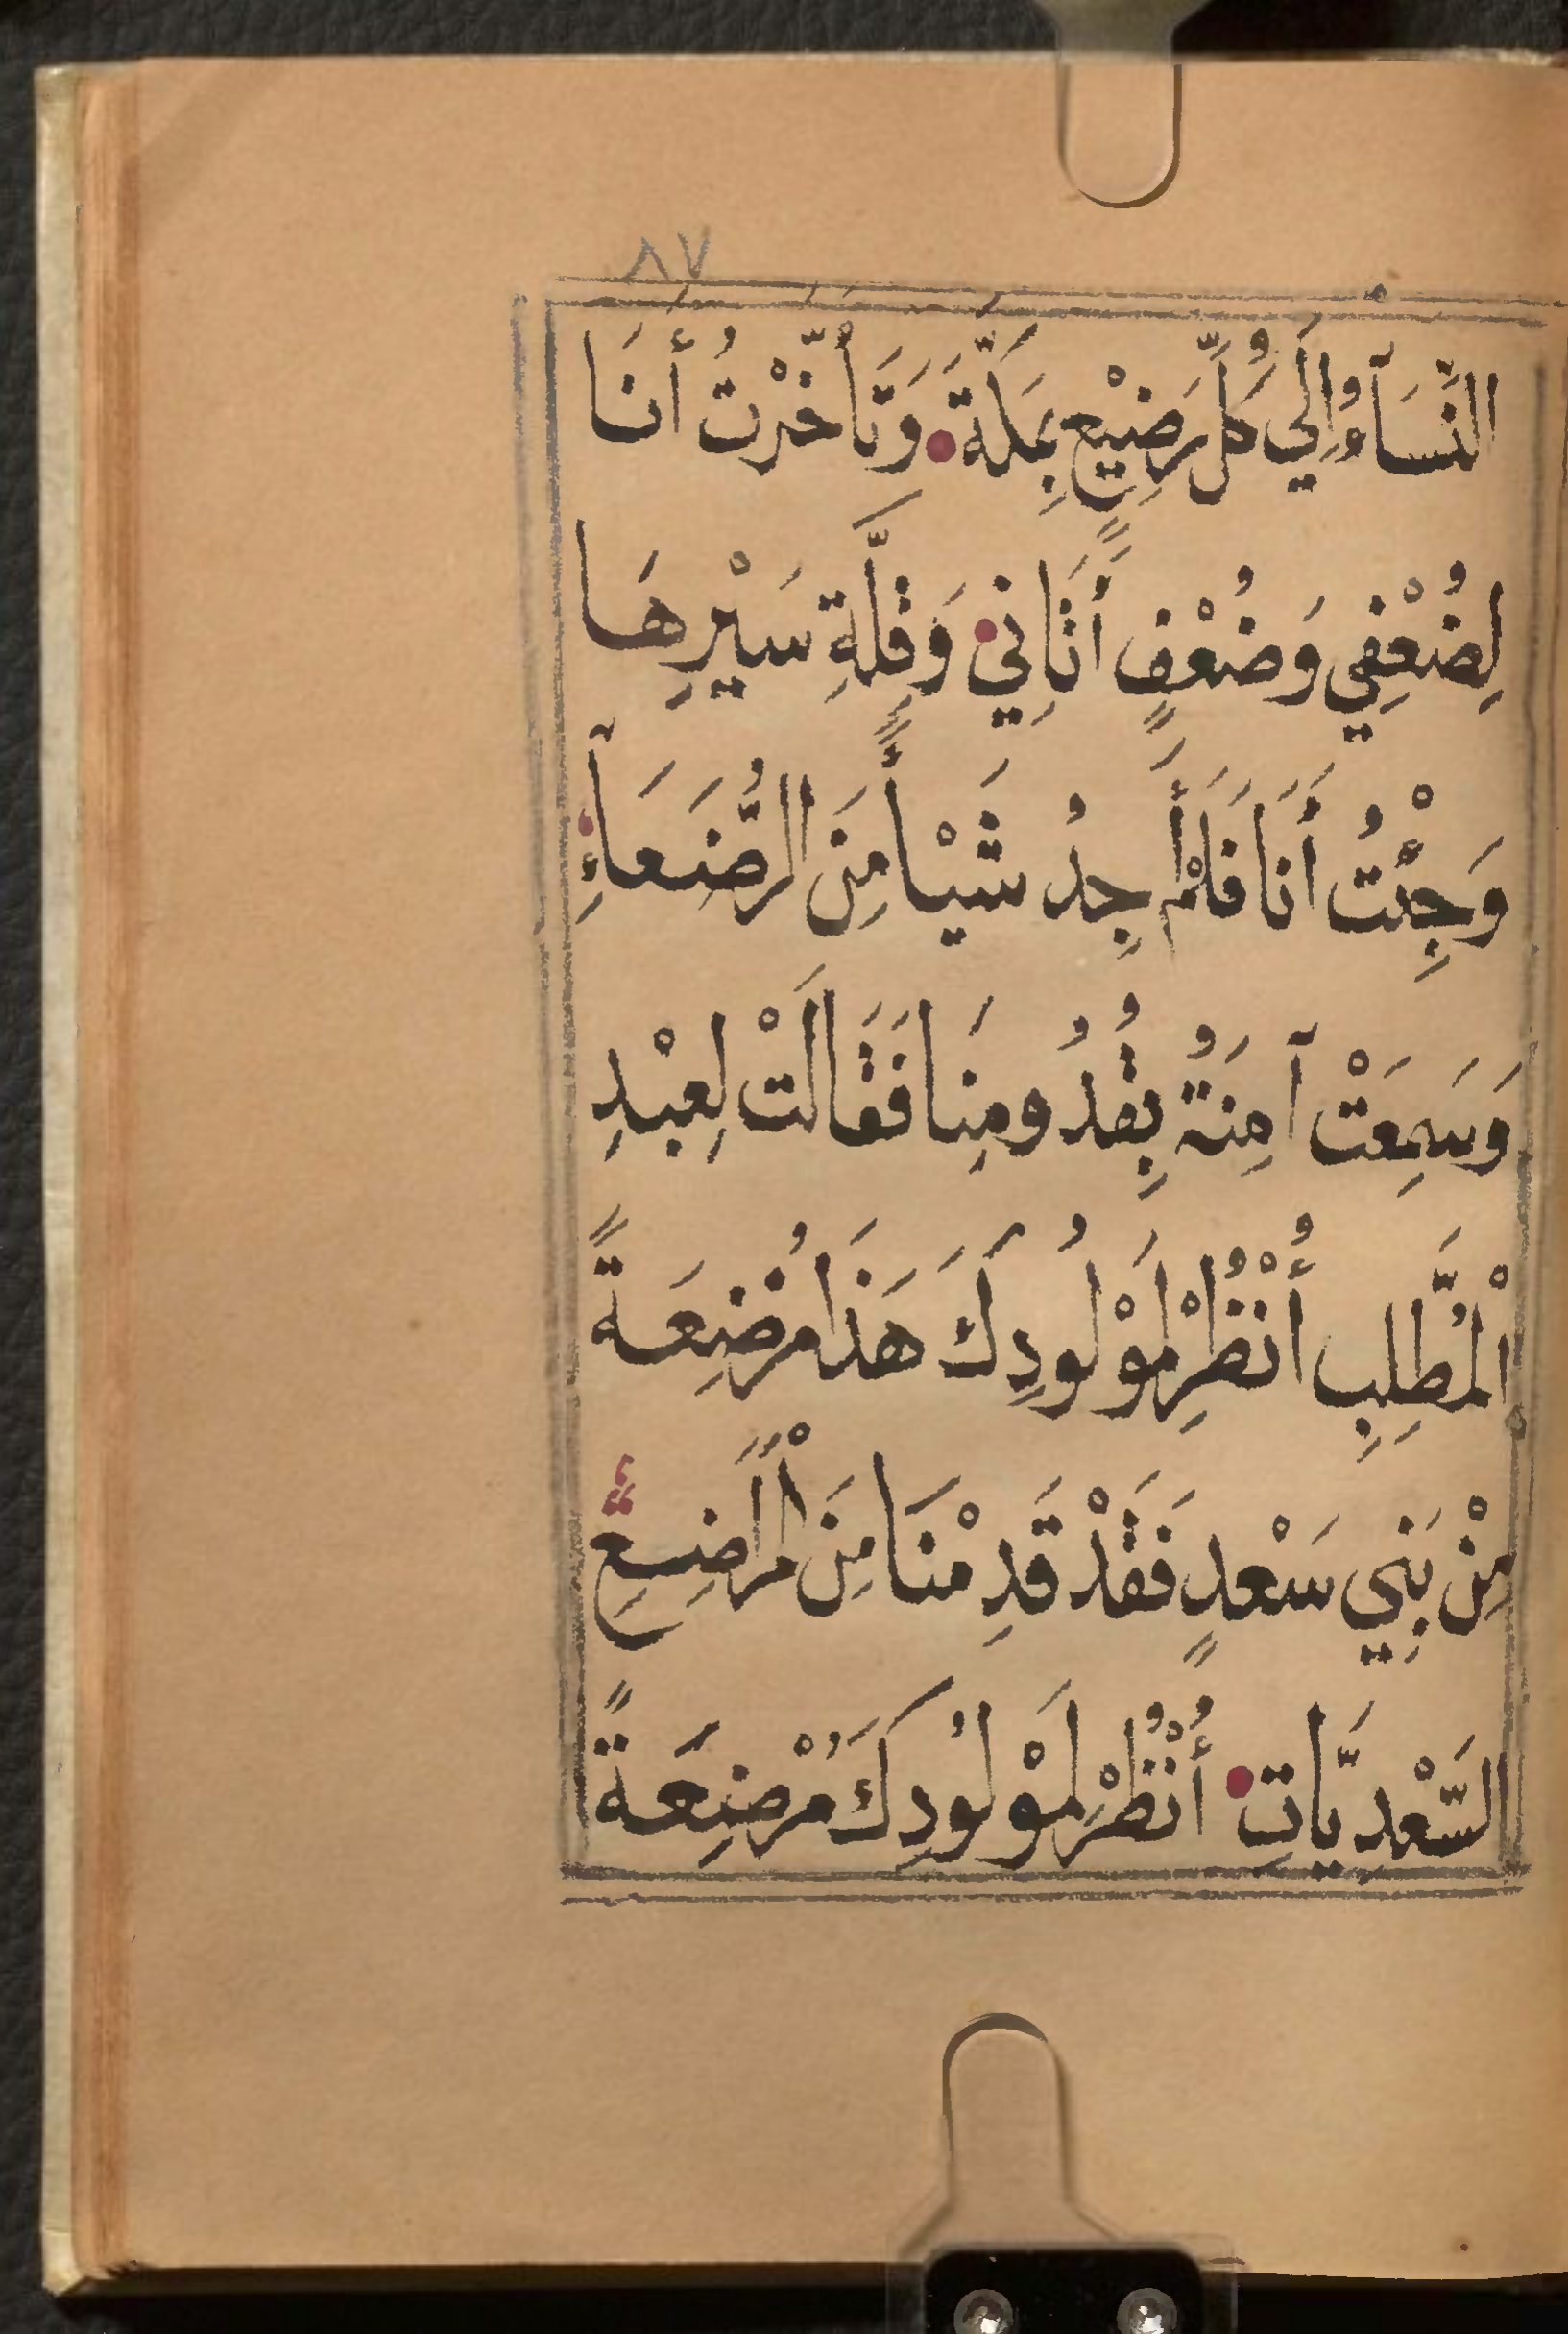 ٨٧
النِّسَآءُ اِلَي كُلِّ رَضِيْعٍ بِمَكَّةَ وَتَأَخَّرْتُ أَنَا
لِضُعْفِي وَضُعْفٍ أَتَانِي وَقِلَّةِ سَيْرِهَا
وَجِئْتُ أَنَا فَلَمْ أَجِدُ شَيْأً مِنَ الرُّضَعَآءِ
وَسَمِعَتْ آمِنَةُ بِقُدُومِنَا فَقَالَتْ لِعَبْدِ
الْمُطَّلِبِ أُنْظُرْ لِمَوْلُودِكَ هَذَا مُرْضِعَةً
مِنْ بَنِي سَعْدٍ فَقَدْ قَدِمْنَا مِنَ الْمَرَاضِعِ
السَّعْدِيَّاتِ أُنْظُرْ لِمَوْلُودِكَ مُرْضِعَةً